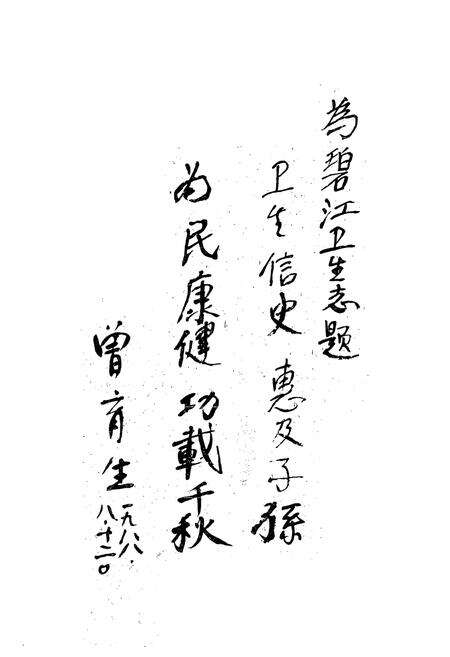 為碧江卫生志题
卫生信史 惠及子孫
为民康健 功載千秋
曾育生
一九八八.
八.十二。